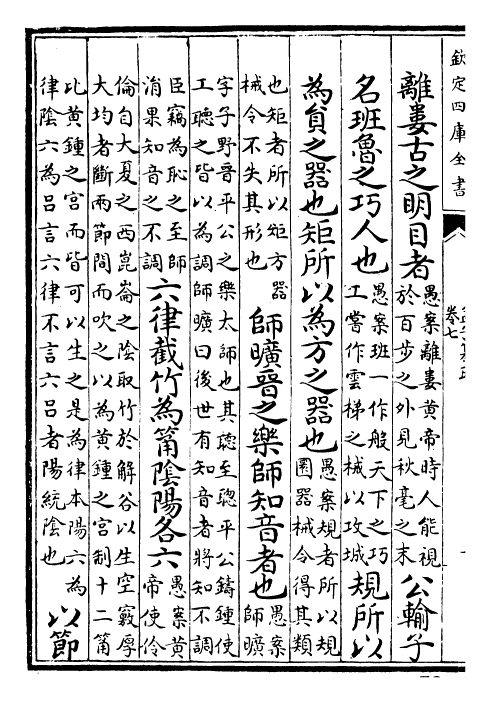 欽定四庫全書
卷七
離婁古之明目者
愚案離婁黄帝時人能視
於百步之外見秋毫之末
公輸子
名班魯之巧人也
愚案班一作般天下之巧
工嘗作雲梯之械以攻城
規所以
為貟之器也矩所以為方之器也
愚案規者所以規
圎器械令得其類
也矩者所以矩方器
械令不失其形也
師曠晉之樂師知音者也
愚案
師曠
字子野晋平公之樂太師也其聽至聰平公鑄鍾使
工聽之皆以為調師曠曰後世有知音者將知不調
臣竊為恥之至師
涓果知音之不調
六律截竹為筩隂陽各六
愚案黄
帝使伶
倫自大夏之西崑崙之隂取竹於解谷以生空竅厚
大均者斷兩節間而吹之以為黄鍾之宫制十二筩
比黄鍾之宫而皆可以生之是為律本陽六為
律隂六為吕言六律不言六吕者陽統隂也
以節